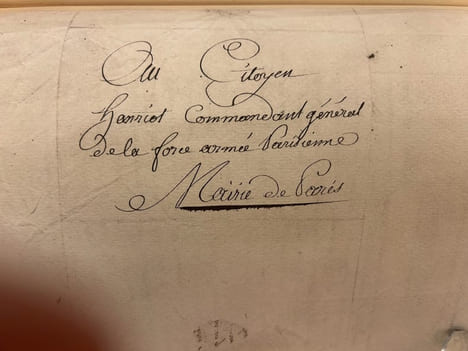 Au Citoyen
Henriot Commandant général
de la force armée Parisienne
Mairie de Paris